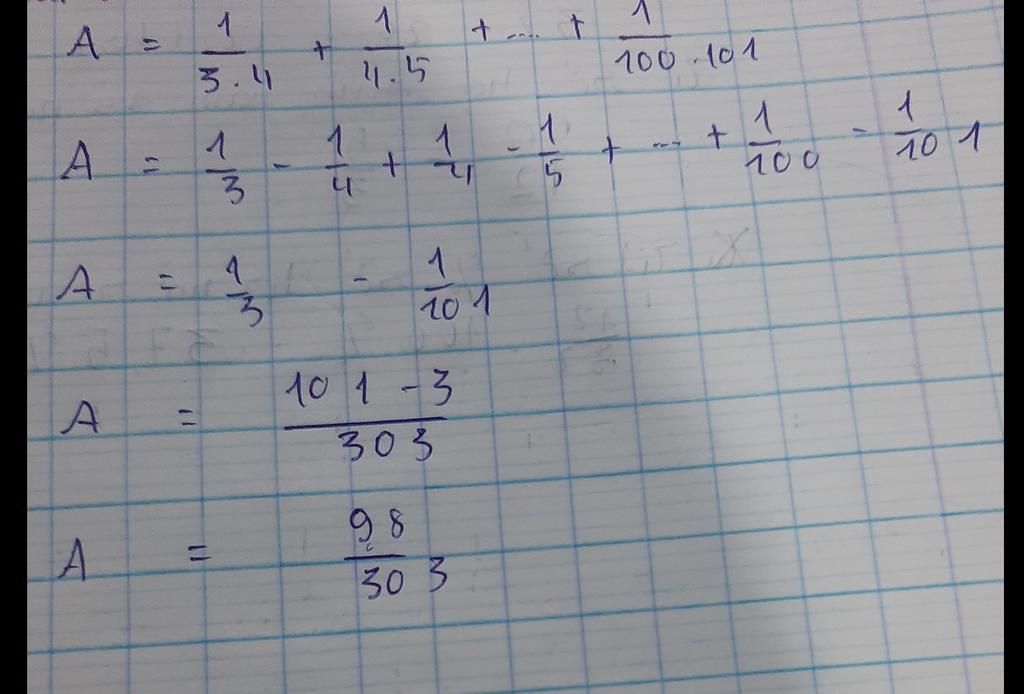 A = 1/3.4 + 1/4.5 + ... + 1/100.101
A = 1/3 - 1/4 + 1/4 - 1/5 + ... + 1/100 - 1/101
A = 1/3 - 1/101
A = 101-3/303
A = 98/303